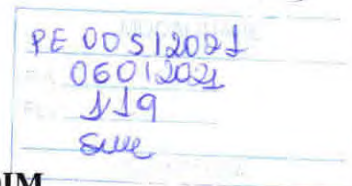 PE 005/2021
060/2021
119
DIM